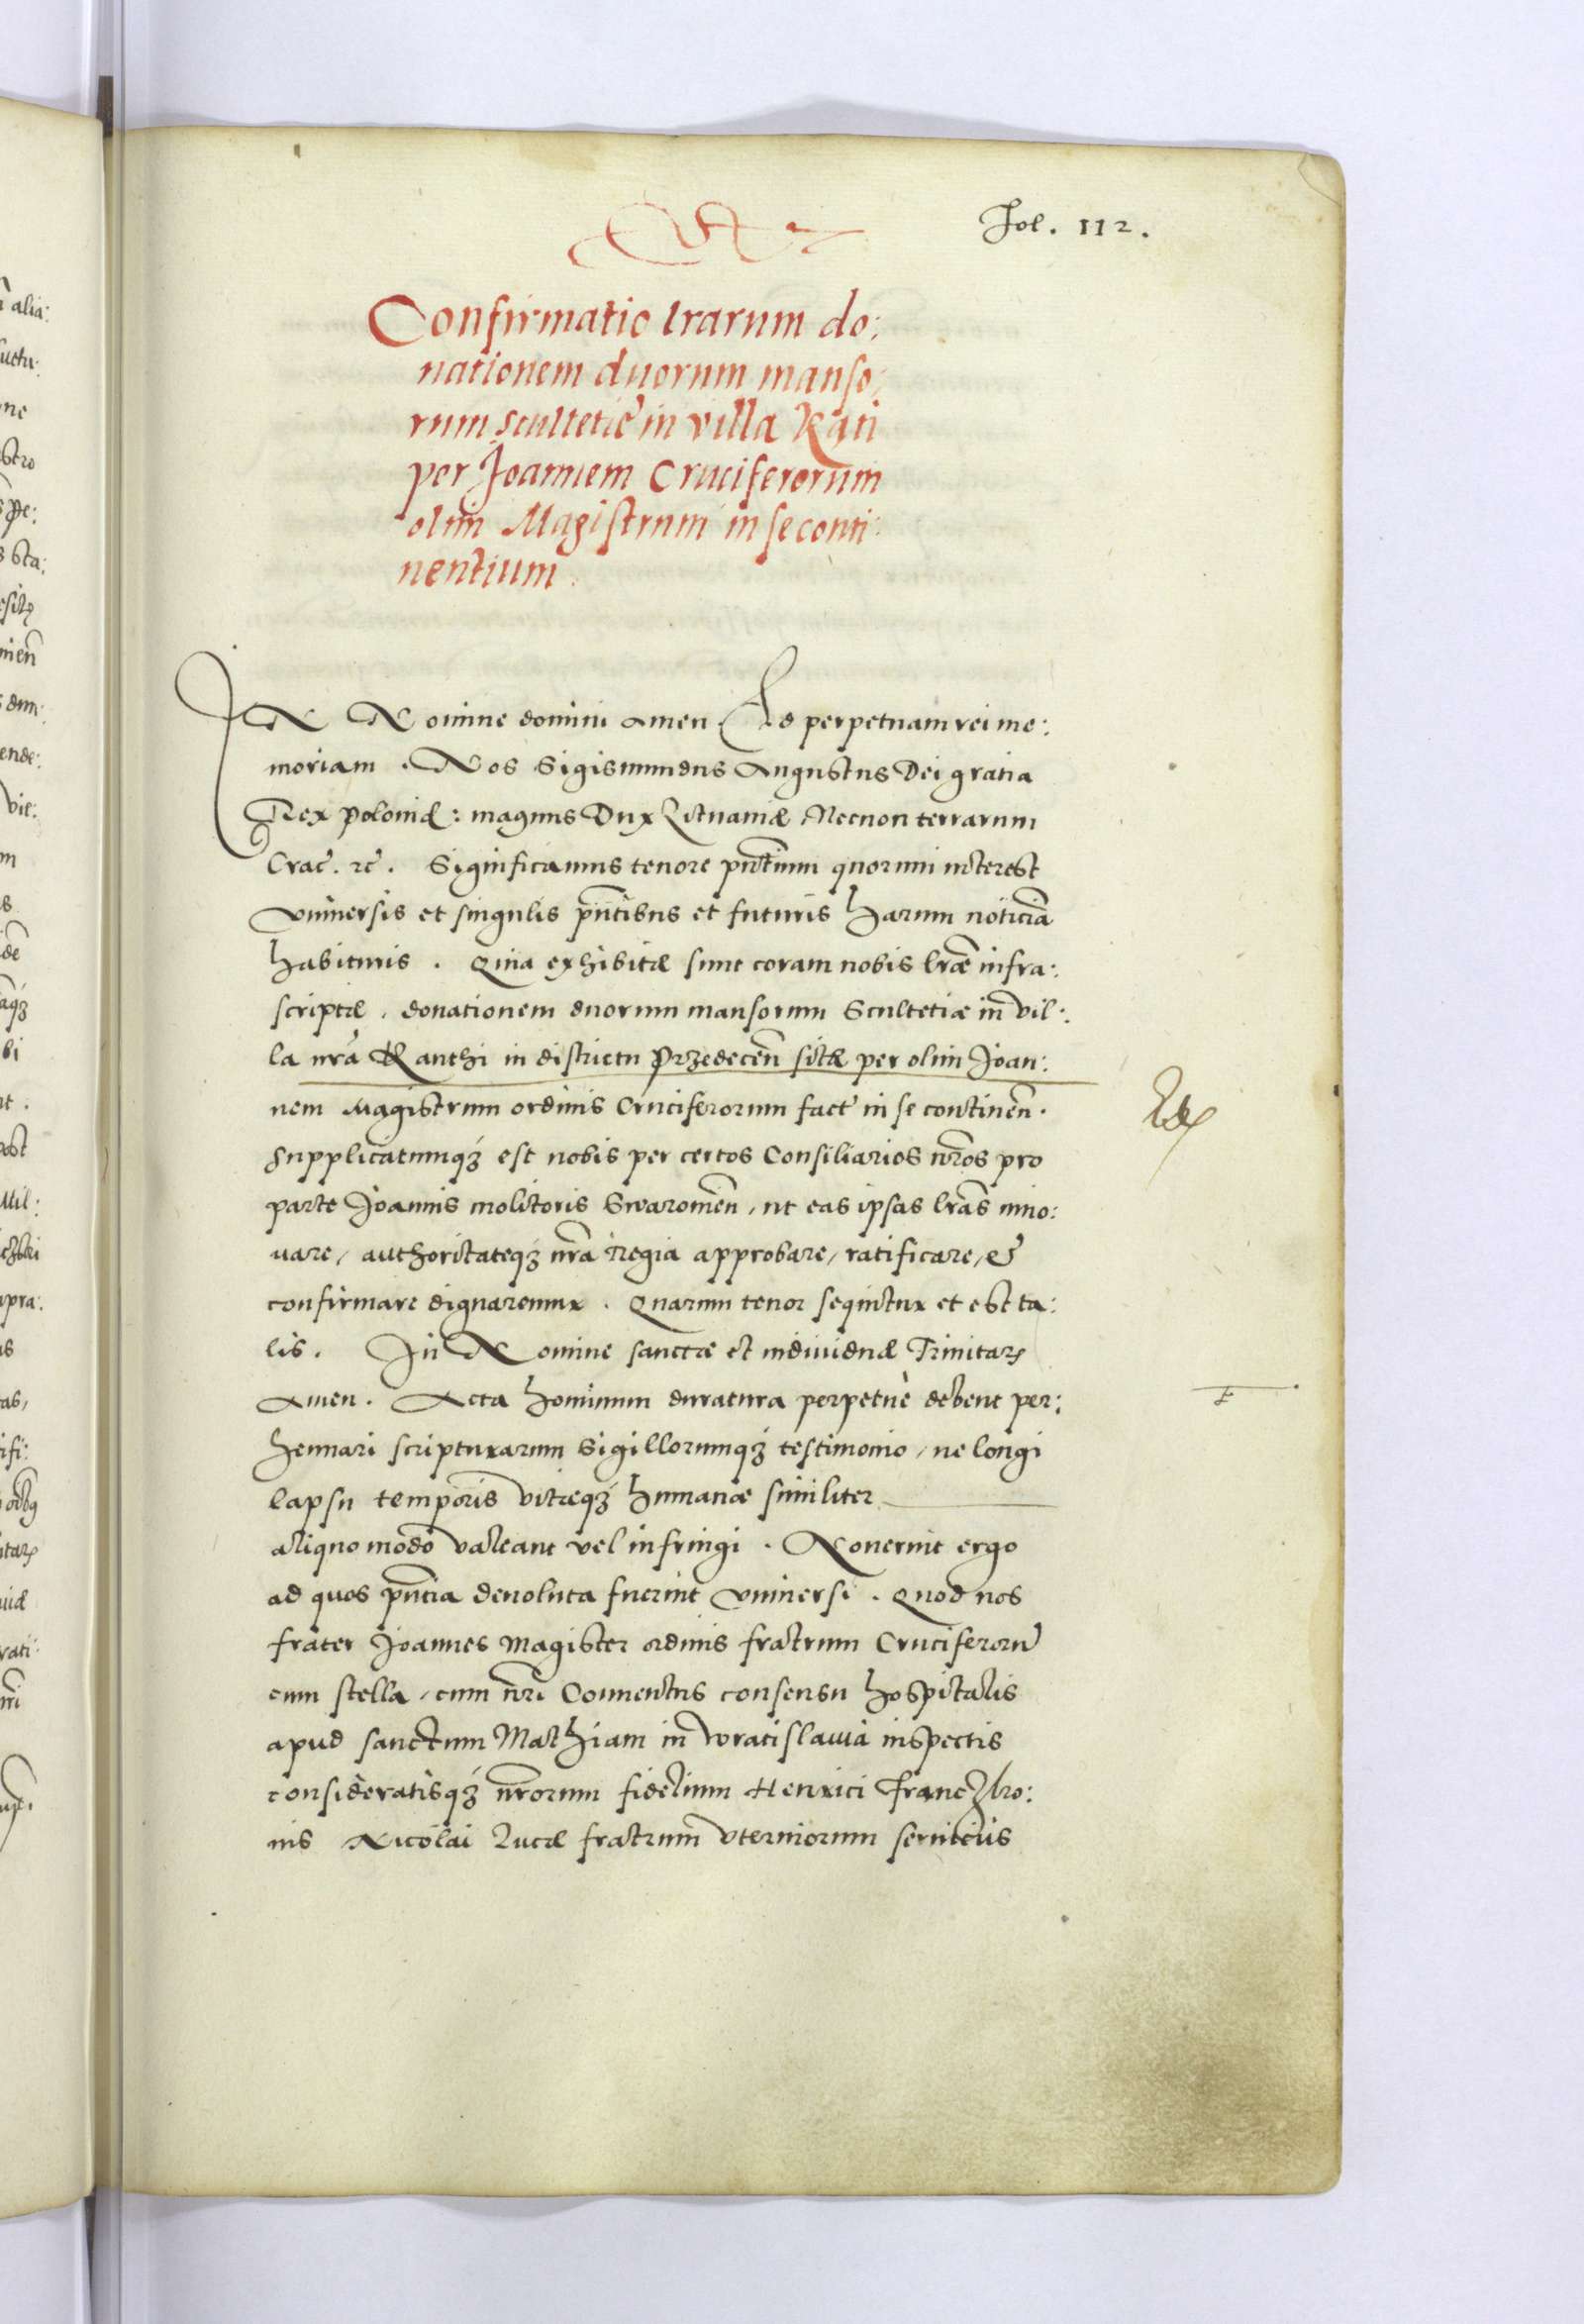 Fol. 112.
Confirmatio lrarum do:
nationem duorum manso,
rum scultetiȩ in villa Kąti
per Joannem Cruciferorum
olim Magistrum in se conti:
nentium.
IN Nomine domini Amen. Ad perpetuam rei me:
moriam. Nos Sigismundus Augustus Dei gratia
Rex poloniæ: magnus Dux Lituaniæ Necnon terrarum
Crac̃. rc̃. Significamus tenore pñtium quorum interest
vniuersis et singulis pñtibus et futuris harum noticiã
habituris. Quia exhibitæ sunt coram nobis lræ infra:
scriptæ, donationem duorum mansorum Scultetiæ in vil:
la nrã Kanthi in districtu Przedeceñ sitæ per olim Joan:
nem Magistrum ordinis Cruciferorum fact̃ in se contineñ.
Supplicatumqȝ est nobis per certos Consiliarios nr̃os pro
parte Joannis molitoris Swaromeñ, ut eas ipsas lrãs inno:
uare, authoritateqȝ nrã Regia approbare, ratificare, et
confirmare dignaremur. Quarum tenor sequitur et est ta:
lis. In Nomine sanctæ et indiuiduæ Trinitatꝭ
Amen. Acta hominum duratura perpetuè debent per:
hennari scripturarum Sigillorumqȝ testimonio, ne longi
lapsu temporis vitæqȝ humanæ similiter
aliquo modo valeant vel infringi. Nouerint ergo
ad quos pñtia deuoluta fuerint vniuersi. Quod nos
frater Joannes Magister ordinis fratrum Cruciferorũ
cum stella, cum nr̃i Conuentus consensu hospitalis
apud sanctum Mathiam in wratislauia inspectis
consideratisqȝ nr̃orum fidelium Henrici Franczko:
nis Nicolai Lucæ fratrum vterinorum seruitiis